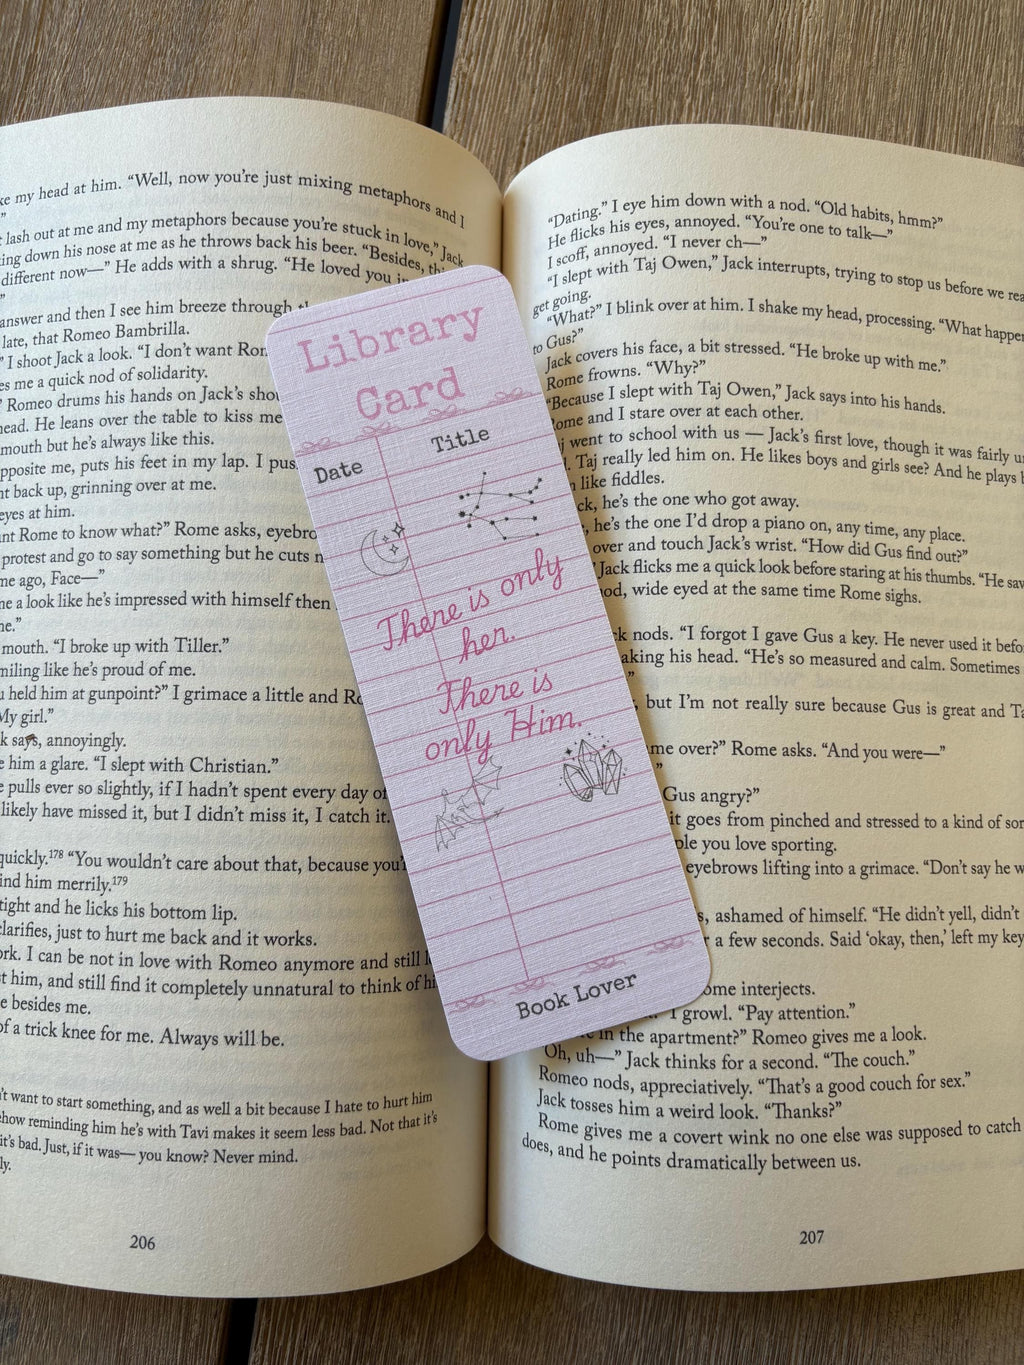 ke my head at him. “Well, now you’re just mixing metaphors and I
”
lash out at me and my metaphors because you’re stuck in love,” Jack
ing down his nose at me as he throws back his beer. “Besides,
different now—” He adds with a shrug. “He loved you
”
answer and then I see him breeze through
late, that Romeo Bambrilla.
” I shoot Jack a look. “I don’t want
es me a quick nod of solidarity.
’ Romeo drums his hands on Jack’s
head. He leans over the table to kiss me
mouth but he’s always like this.
pposite me, puts his feet in my lap. I
nt back up, grinning over at me.
eyes at him.
nt Rome to know what?” Rome asks, eyebro
protest and go to say something but he cuts
me ago, Face—”
ne a look like he’s impressed with himself then
ne.”
mouth. “I broke up with Tiller.”
miling like he’s proud of me.
u held him at gunpoint?” I grimace a little and
My girl.”
k says, annoyingly.
e him a glare. “I slept with Christian.”
e pulls ever so slightly, if I hadn’t spent every day of
likely have missed it, but I didn’t miss it, I catch it.
quickly.178 “You wouldn’t care about that, because
ind him merrily.179
tight and he licks his bottom lip.
clarifies, just to hurt me back and it works.
ork. I can be not in love with Romeo anymore and still
st him, and still find it completely unnatural to think of
e besides me.
of a trick knee for me. Always will be.
’t want to start something, and as well a bit because I hate to hurt him
ehow reminding him he’s with Tavi makes it seem less bad. Not that it’s
it’s bad. Just, if it was— you know? Never mind.
ly.
206
Library
Card
Date
Title
There is only
her.
There is
only Him.
Book Lover
“Dating.” I eye him down with a nod. “Old habits, hmm?”
He flicks his eyes, annoyed. “You’re one to talk—”
I scoff, annoyed. “I never ch—”
“I slept with Taj Owen,” Jack interrupts, trying to stop us before we rea
get going.
“What?” I blink over at him. I shake my head, processing. “What happen
to Gus?”
Jack covers his face, a bit stressed. “He broke up with me.”
Rome frowns. “Why?”
“Because I slept with Taj Owen,” Jack says into his hands.
Rome and I stare over at each other.
j went to school with us — Jack’s first love, though it was fairly un
. Taj really led him on. He likes boys and girls see? And he plays b
like fiddles.
ck, he’s the one who got away.
, he’s the one I’d drop a piano on, any time, any place.
over and touch Jack’s wrist. “How did Gus find out?”
Jack flicks me a quick look before staring at his thumbs. “He saw
od, wide eyed at the same time Rome sighs.
k nods. “I forgot I gave Gus a key. He never used it befo
aking his head. “He’s so measured and calm. Sometimes
”
, but I’m not really sure because Gus is great and Ta
me over?” Rome asks. “And you were—”
”
Gus angry?”
it goes from pinched and stressed to a kind of sor
ple you love sporting.
eyebrows lifting into a grimace. “Don’t say he w
s, ashamed of himself. “He didn’t yell, didn’t
r a few seconds. Said ‘okay, then,’ left my key
ome interjects.
” I growl. “Pay attention.”
in the apartment?” Romeo gives me a look.
“Oh, uh—” Jack thinks for a second. “The couch.”
Romeo nods, appreciatively. “That’s a good couch for sex.”
Jack tosses him a weird look. “Thanks?”
Rome gives me a covert wink no one else was supposed to catch
does, and he points dramatically between us.
207